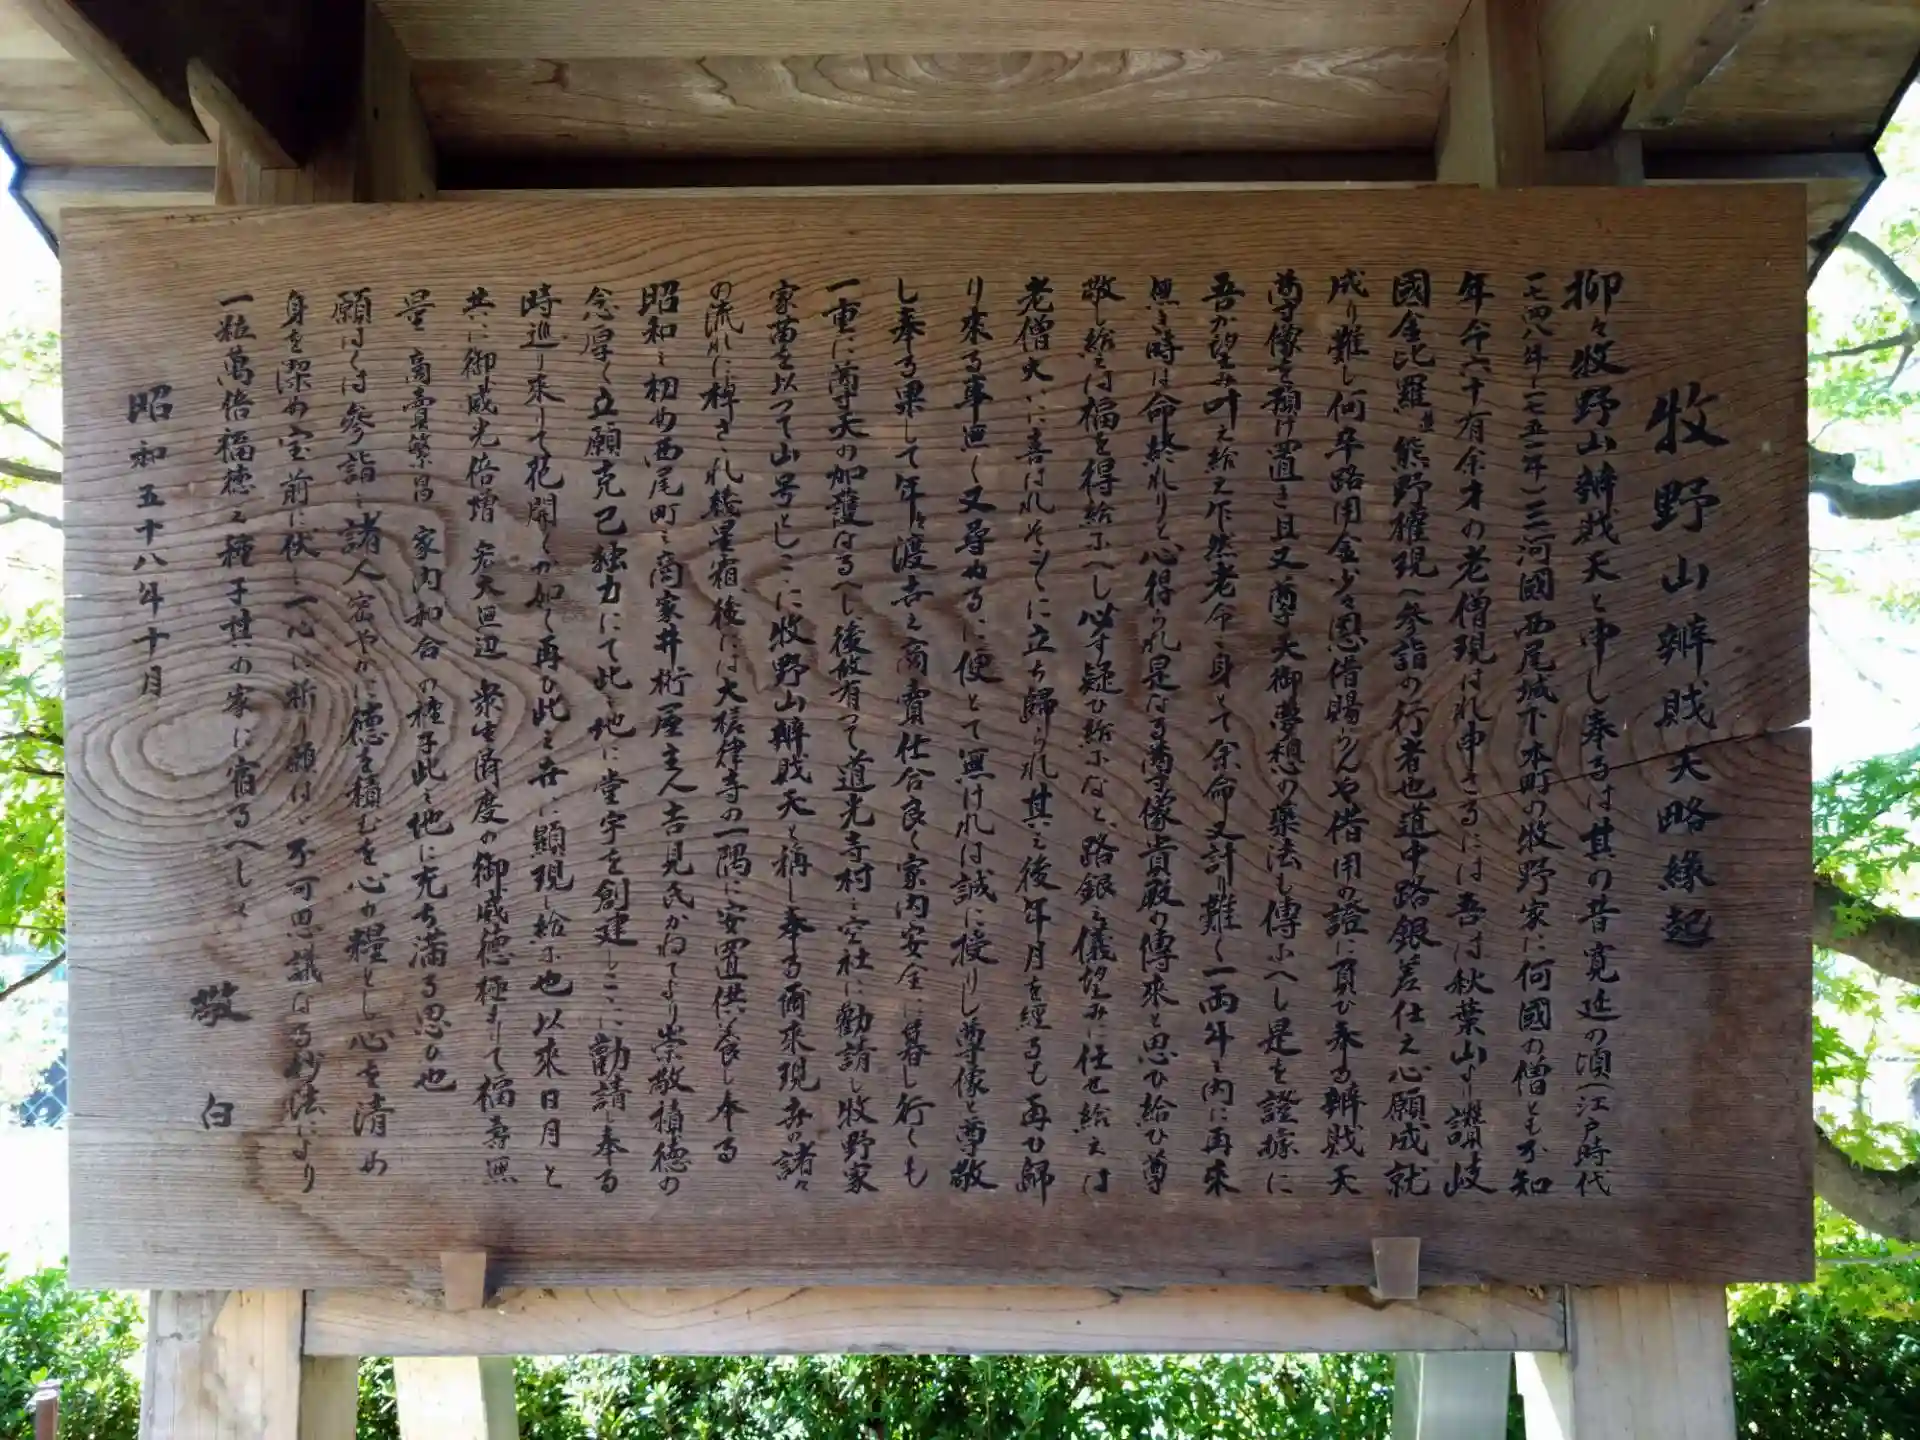 牧野山辨戝天略縁起
抑々牧野山辨戝天と申し奉るは其の昔寛延の頃(江戸時代
一七四八年~一七五一年)三河國西尾城下本町の牧野家に何國の僧とも不知
年令六十有余才の老僧現はれ申さるには吾は秋葉山より讃岐
國金比羅並熊野権現へ参詣の行者也道中路銀差仕え心願成就
成り難し何卒路用金少々恩借賜らんや借用の證に頁ひ奉る辨戝天
尊像を預け置き且又尊天御夢想の薬法も傳ふへし是を證據に
吾が望み叶え給え乍然老令之身とて余命又計り難く一両年之内に再来
無き時は命終れりと心得られ是なる尊像貴殿の傳来と思ひ給ひ尊
敬し給えは福を得給ふへし必す疑ひ給ふなと路銀之儀望みに任せ給えは
老僧大いに喜はれそこそこに立ち歸られ其之後年月を經るも再ひ歸
り來る事無く又尋ぬるに便とて無けれは誠に授りし尊像と尊敬
し奉る果して年々渡去之商賣仕合良く家内安全に暮し行くも
一重に尊天の加護なるへし後故有って道光寺村之空社に勸請し牧野家
家苗を以って山号としここに牧野山辨戝天と稱し奉る爾来現世の諸々
の流れに棹され轉星宿後には大槎律寺の一隅に安置供養し奉る
昭和之初め西尾町之商家井桁屋主人吉見氏かねてより崇敬積徳の
念厚く立願克己独力にて此之地に堂宇を創建しここに勸請し奉る
時巡り來りて花開くか如く再ひ此之世に顯現し給ふ也以來日月と
共に御威光倍増 宏大無辺 衆生済度の御威徳極まりて福壽無
量 商賣繁昌 家内和合の種子此之地に充ち満る思ひ也
願はくは參詣之諸人密やかに徳を積むを心の糧とし心を清め
身を潔め宝前に伏し一心に祈り願はゝ不可思議なる妙法により
一粒萬倍福徳之種子其の家に宿るへし々
昭和五十八年十月
敬白